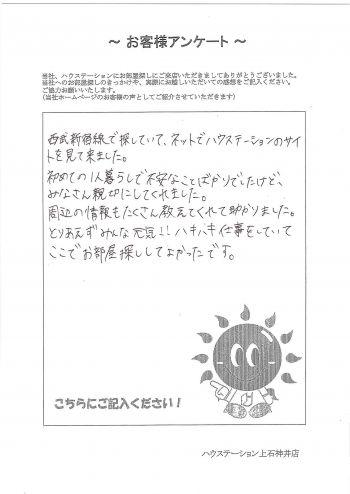 ～ お客様アンケート ～
当社、ハウステーションにお部屋探しにご来店いただきましてありがとうございました。
当社へのお部屋探しのきっかけや、実際にお越しいただいての感想をご記入ください。
ご協力お願いいたします。
（当社ホームページのお客様の声としてご紹介させていただきます）
西武新宿線で探していて、ネットでハウステーションのサイ
トを見て来ました。
初めての1人暮らしで不安なことばかりでしたけど、
みなさん親切にしてくれました。
周辺の情報もたくさん教えてくれて助かりました。
とりあえずみんな元気!! ハキハキ仕事をしていて
ここでお部屋探ししてよかったです。
こちらにご記入ください！
ハウステーション上石神井店